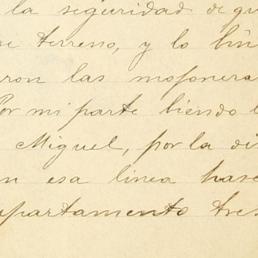 la seguridad de qu
se terreno, y lo
ron las mojonera
Por mi parte biendo
Miguel, por la di
n esa linea hace
epartamento tres